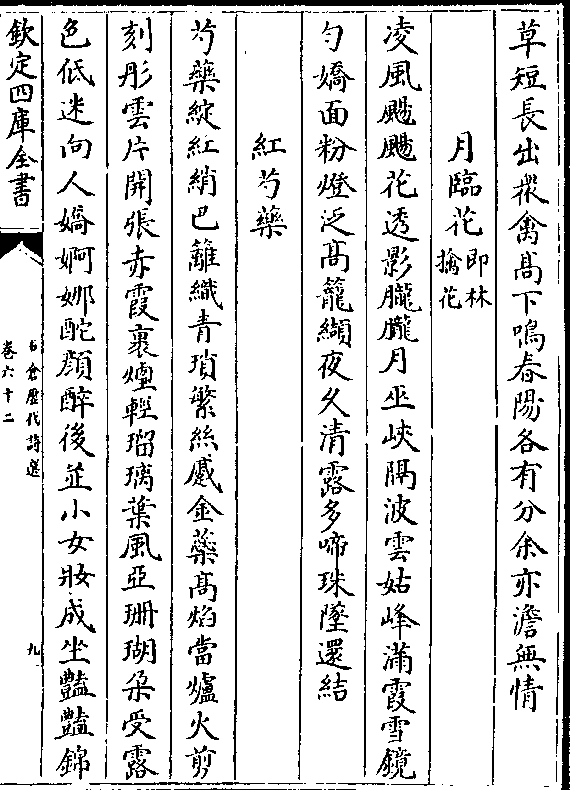 草短長出衆禽高下鳴春陽各有分余亦澹無情
月臨花即林擒花
凌風颺颺花透影朧朧月巫峽隔波雲姑峰滿霞雪鏡
勻嬌面粉燈泛高籠纈夜久清露多啼珠墜還結
紅芍藥
芍藥綻紅綃巴籬織青瑣繁絲蹙金蘂高焰當爐火剪
刻彤雲片開張赤霞裹煙輕瑠璃葉風亞珊瑚朵受露
色低迷向人嬌婀娜酡顔醉後並小女妝成坐豔豔錦
欽定四庫全書
石倉歷代詩選
卷六十二
九